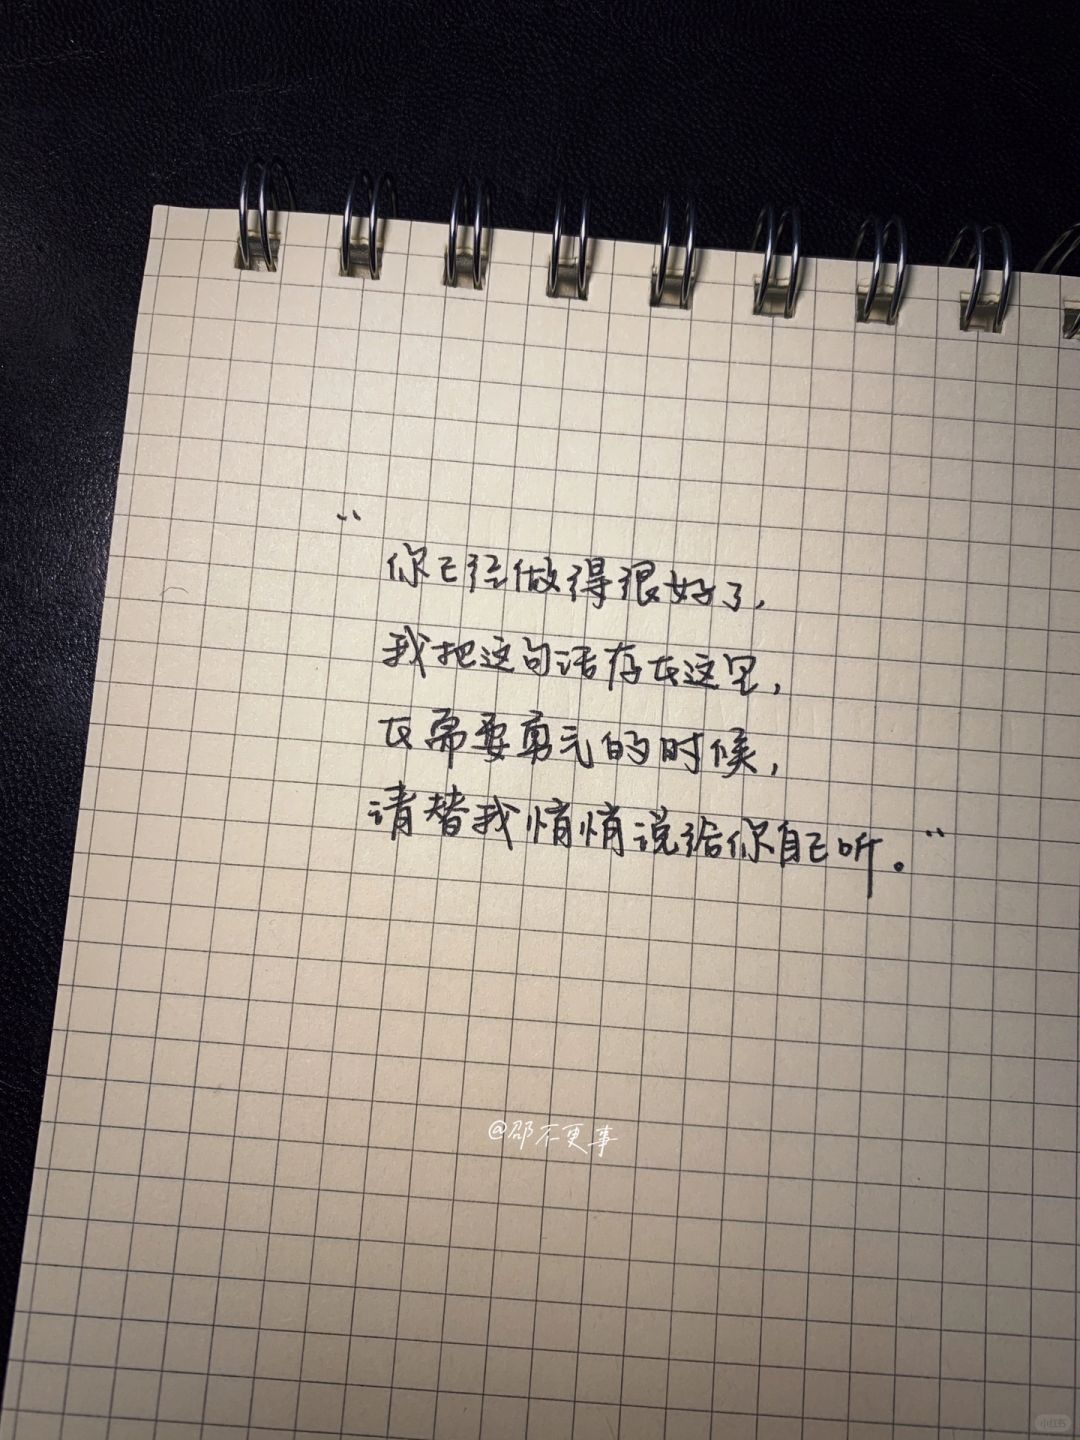 “
你已经做得很好了，
我把这句话存在这里，
在需要勇气的时候，
请替我悄悄说给你自己听。”
@邵不更事
小红书